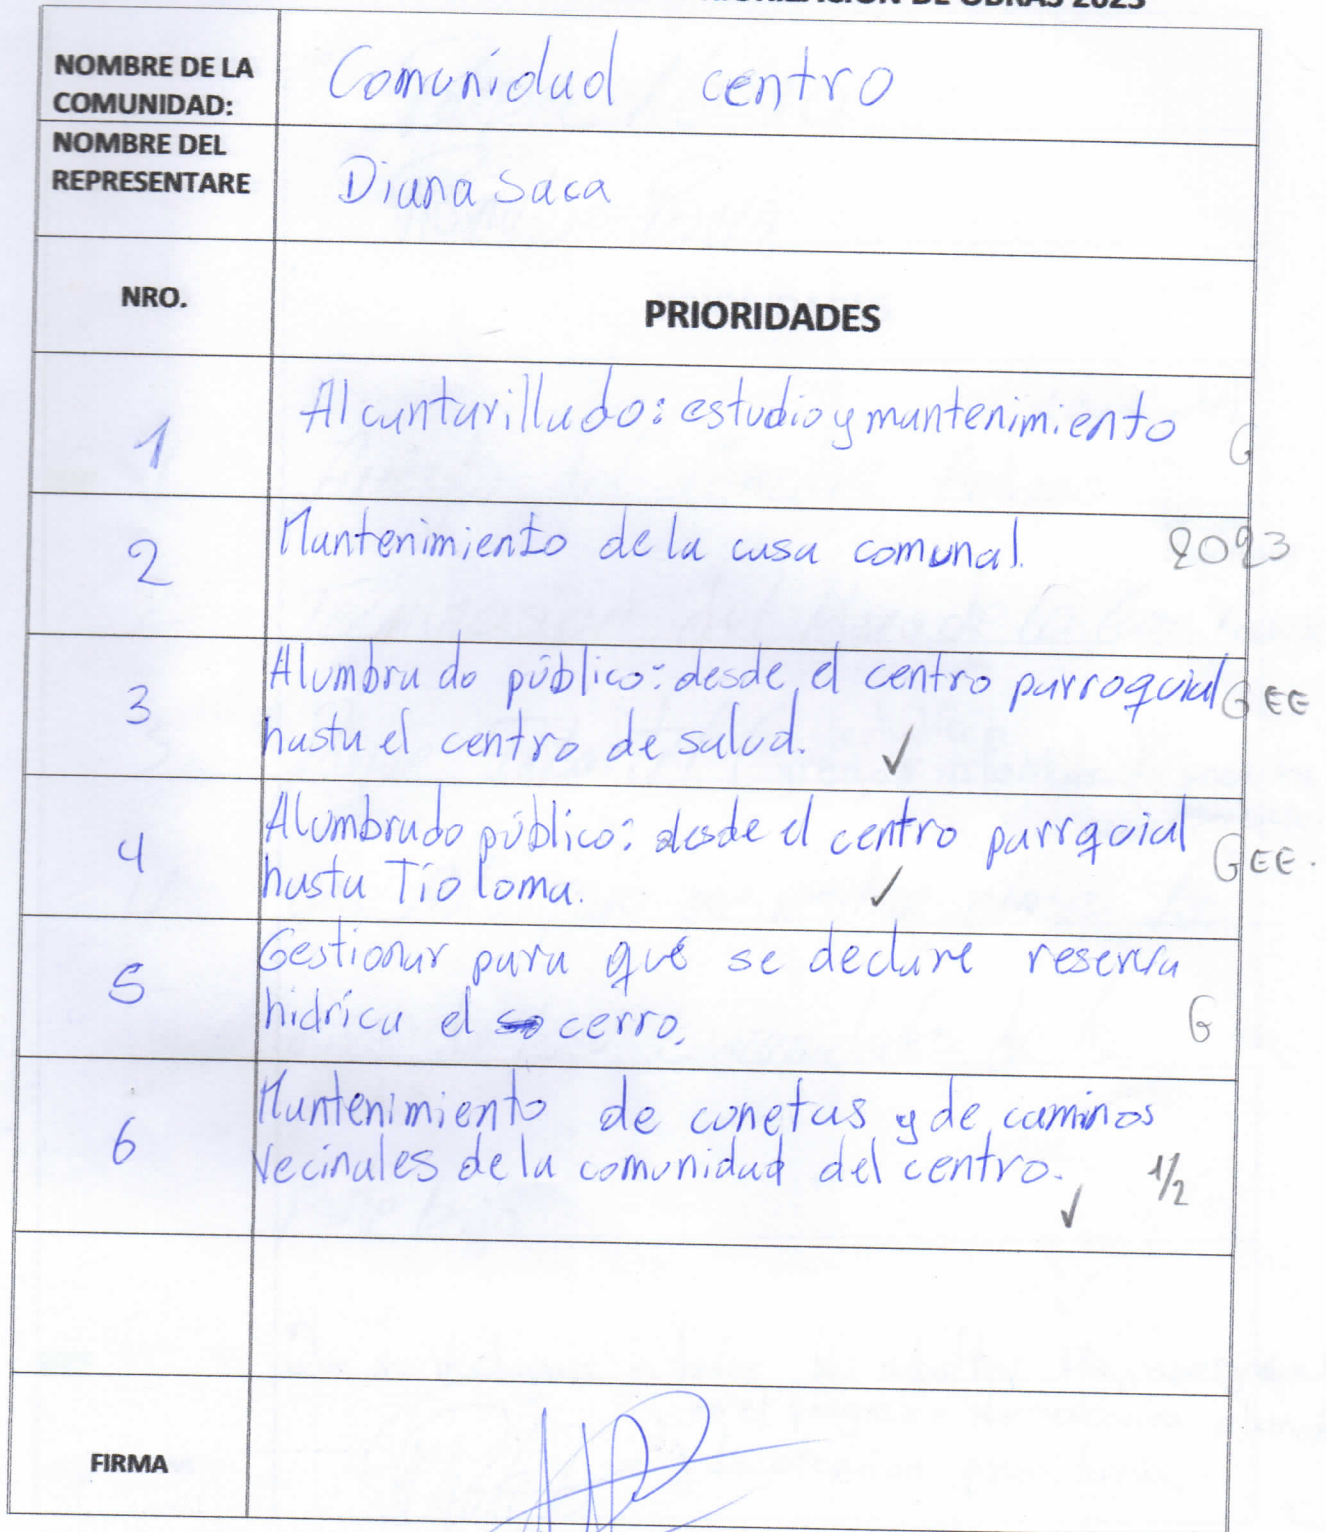 DE OBRAS 2023
NOMBRE DE LA
COMUNIDAD:
Comunidad centro
NOMBRE DEL
REPRESENTARE
Diana Saca
NRO.
PRIORIDADES
1
Alcantarillado: estudio y mantenimiento
G
2
Mantenimiento de la casa comunal.
2023
3
Alumbrado público: desde el centro parroquial
G EE
hasta el centro de salud. ✓
4
Alombrado público: desde el centro parrquial
GEE.
hasta Tío loma. ✓
5
Gestionar para qué se declare reserva
hidrica el cerro.
G
6
Mantenimiento de conetas y de caminos
vecinales de la comunidad del centro. ✓ 1/2
FIRMA